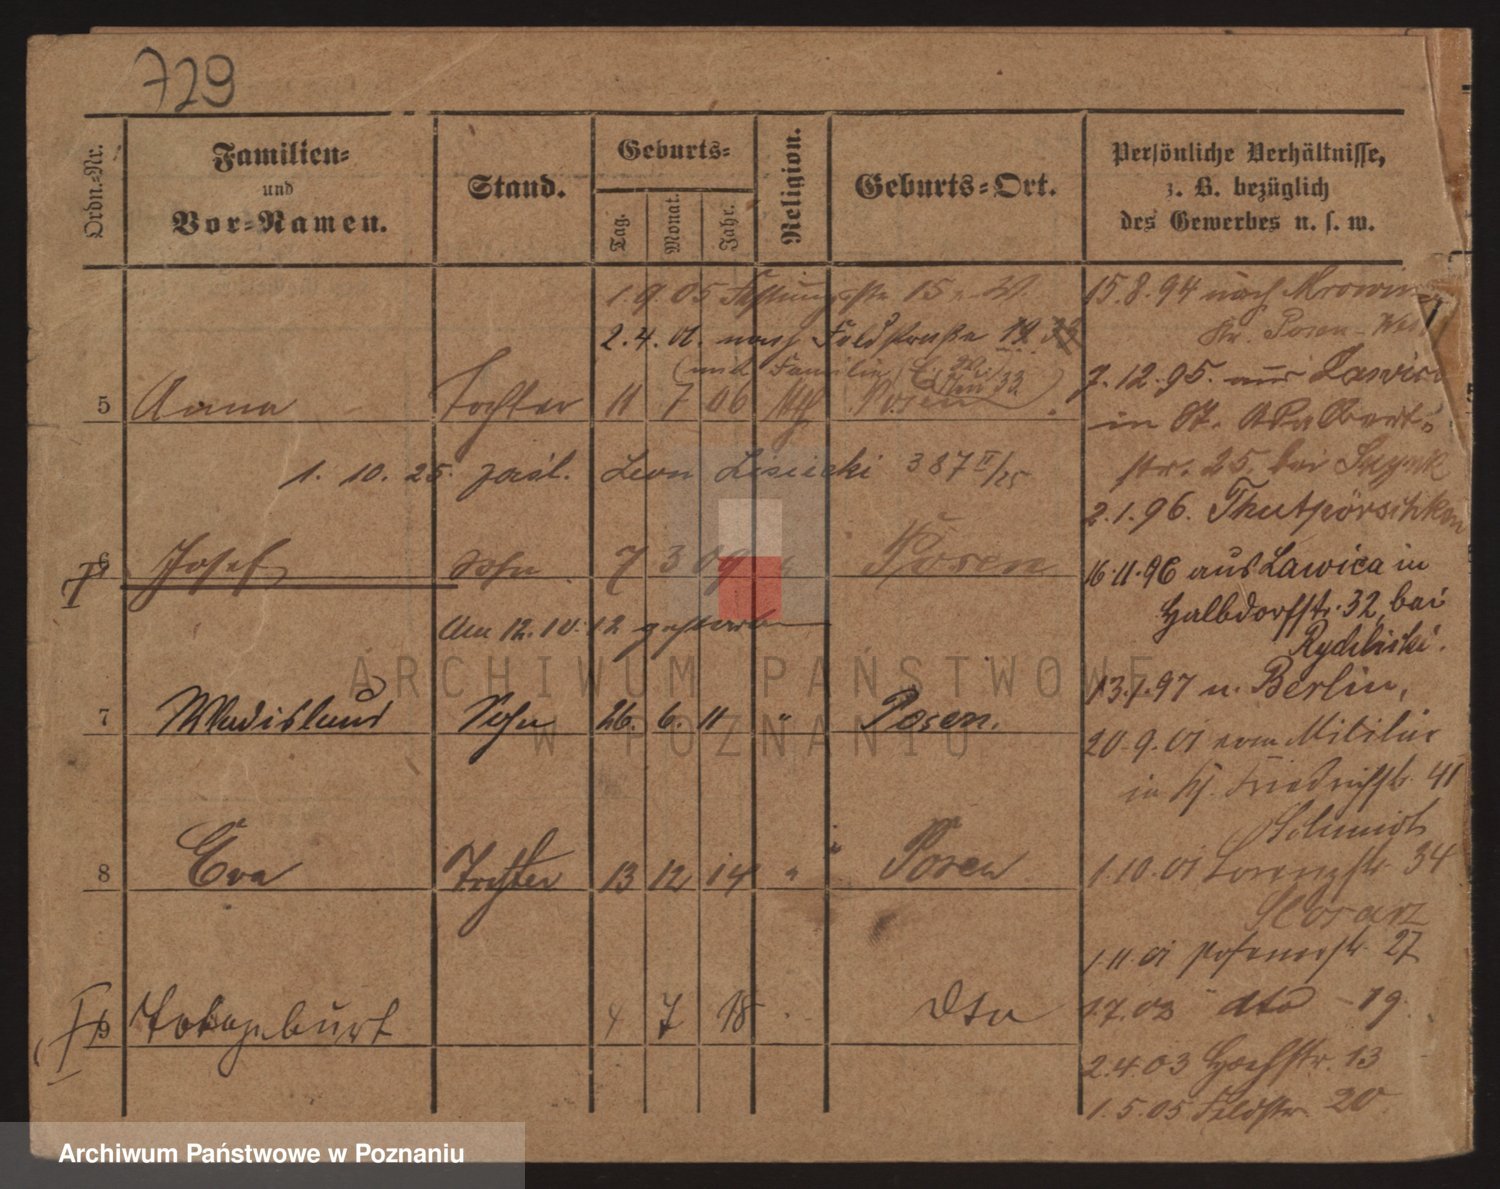 729
Ordn.-Nr.
Familien-
und
Vor-Namen.
Stand.
Geburts-
Tag.
Monat.
Jahr.
Religion.
Geburts-Ort.
Persönliche Verhältnisse,
z. B. bezüglich
des Gewerbes u. s. w.
1.9.05 15
2.4. nach Feldstraße
(und Familie
5 Anna Tochter 11 7 06 kth Posen
1. 10. 25. zaśl. Leon Lisiecki 387 II/25
6 Josef Sohn 7 3 09 " Posen
Am 12.10.12 gestorben
7 Wladislaus Sohn 26. 6. 11 " Posen.
8 Eva Tochter 13 12 14 " Posen
9 Totgeburt 4 7 18 dto
15.8.94 nach
Kr. Posen-West
7.12.95. aus Lawica
in St. Adalbert-
str. 25, bei
2.1.96.
16.11.96 aus Lawica in
Halbdorfstr. 32, bei
Rydlicki.
13.1.97 n. Berlin,
20.9.01 vom Militär
in Friedrichstr. 41
Schmidt
1.10.01 Lorenzstr. 34
1.11.01 Posenerstr. 27
1.7.02 " dto - 19.
2.4.03 Hochstr. 13
1.5.05 Feldstr. 20
ARCHIWUM PAŃSTWOWE
W POZNANIU
Archiwum Państwowe w Poznaniu